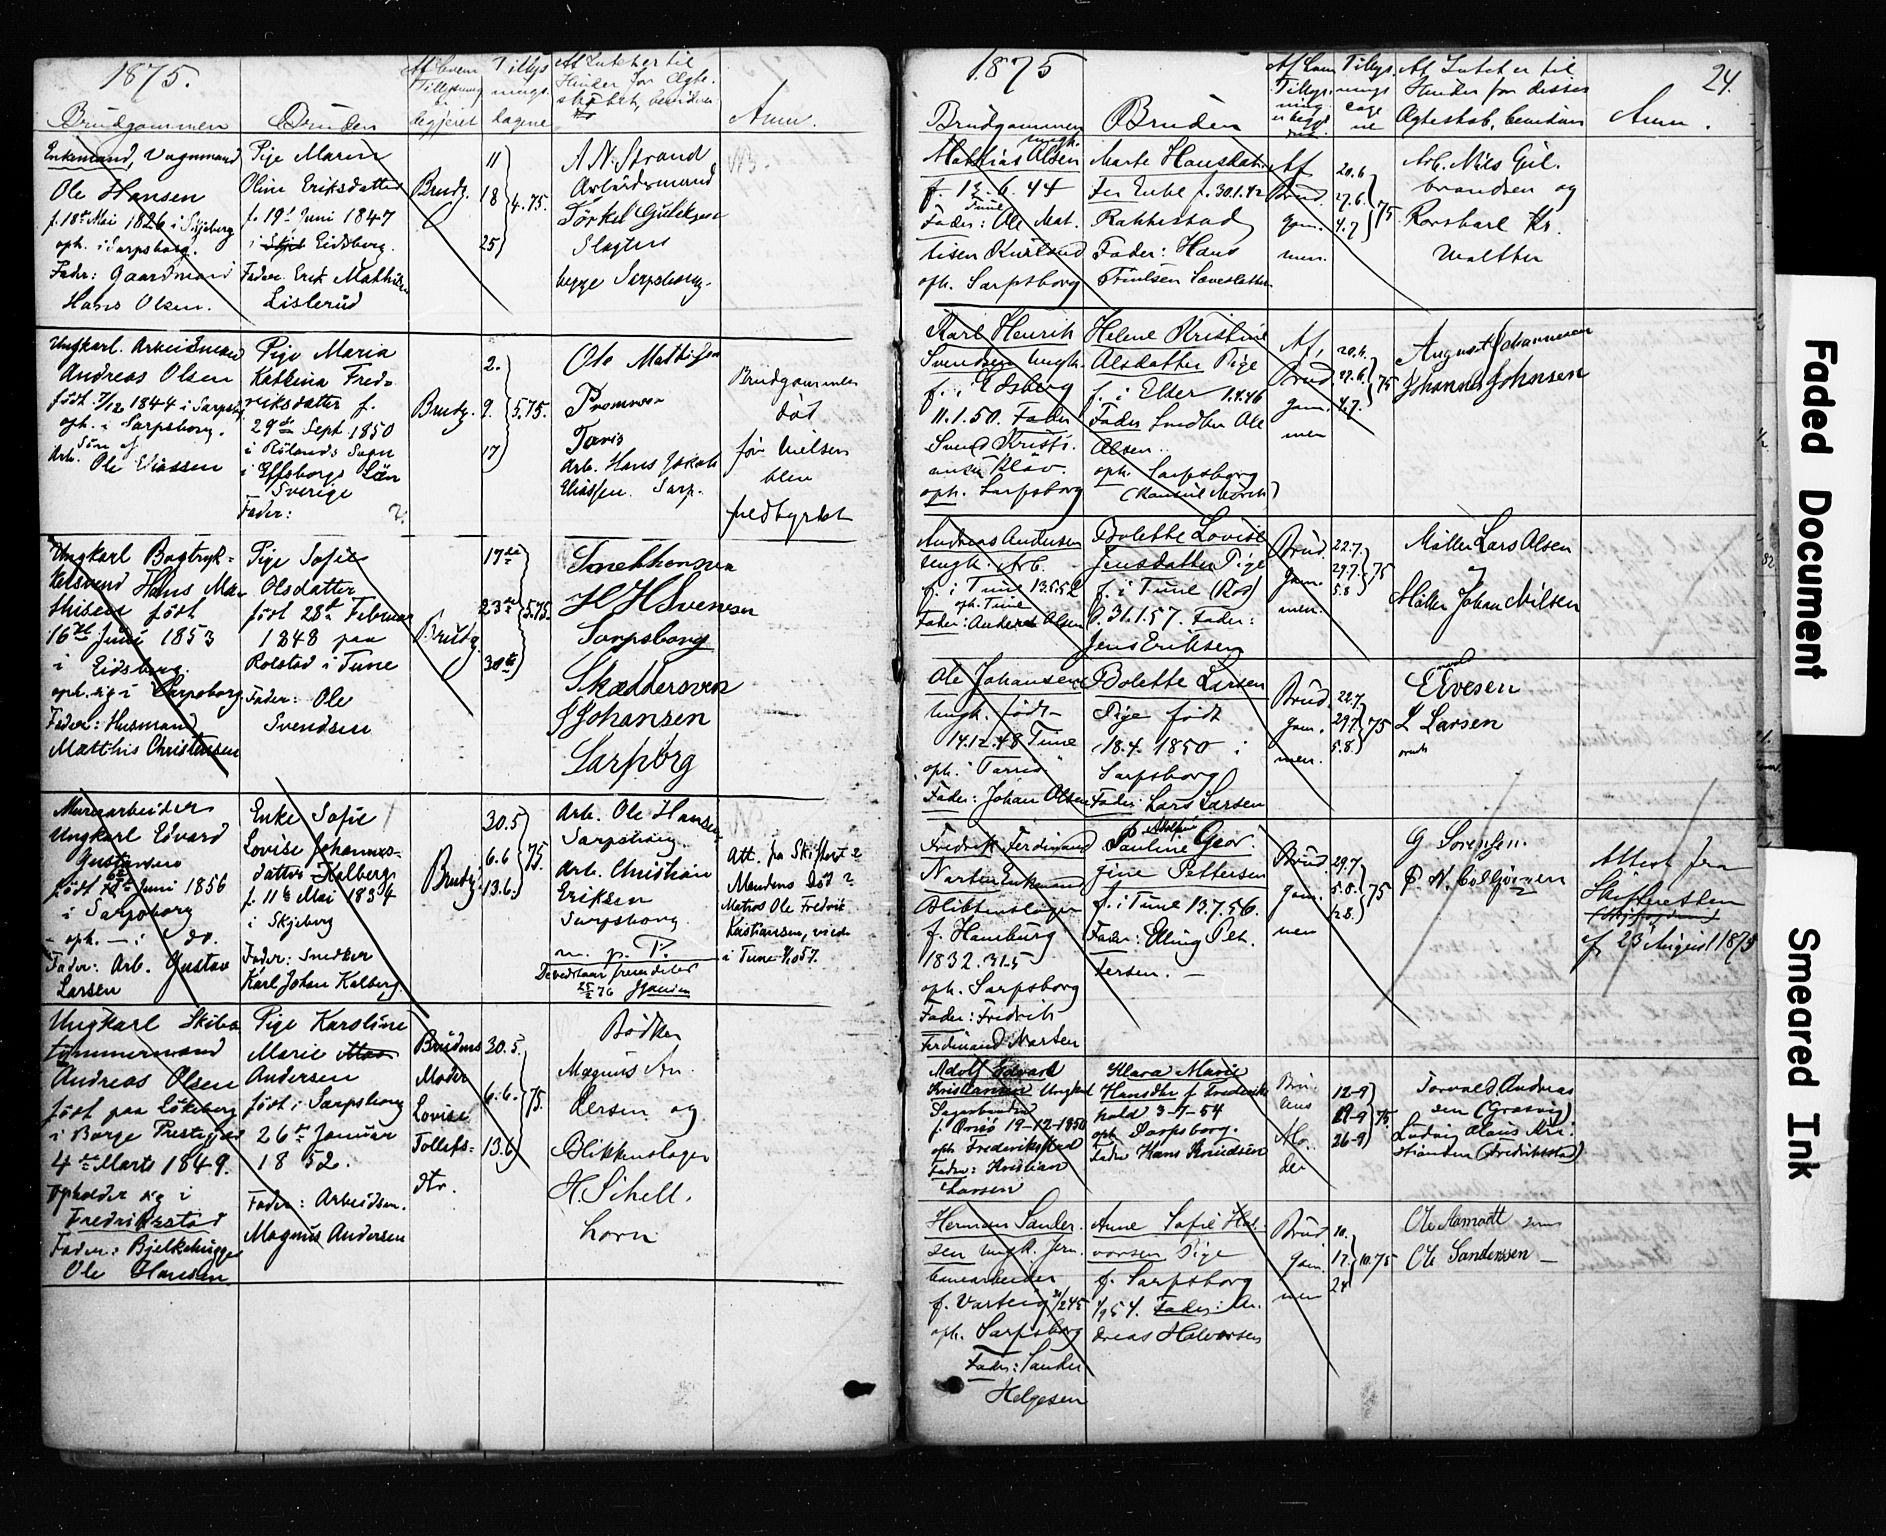 1875.
Brudgommen
Bruden
Af hvem Tillysning er begjæret
Tillysnings dagene
At Intet er til Hinder for Ægteskabet, bevidnes
Anm.
Enkemand, Vognmand
Ole Hansen
f. 18de Mai 1826 i Skjeberg
oph. i Sarpsborg.
Fader: Gaardmand
Hans Olsen.
Pige Maren
Oline Eriksdatter
f. 19de Juni 1847
i Eidsberg.
Fader: Erik Mathisen
Listerud
Brudg.
11
18 4.75.
25
A. N. Strand
Arbeidsmand
Slagter
begge Sarpsborg.
Ungkarl. Arbeidsmand
Andreas Olsen
født 7/12 1844 i Sarpsbg
oph. i Sarpsborg.
Søn af
Arb. Ole
Pige Maria
Kathrina Fred-
riksdatter f.
29de Sept. 1850
i Rölands Sogn
i Elfsborgs Län
Sverige
Fader: ?
Brudg.
2.
9. 5.75.
17
Ole Mathisen
Arb. Hans Jakob
Eliassen. Sarp.
Brudgommen
død
før vielsen
blev
fuldbyrdet
Ungkarl Bogtryk-
kersvend Hans Ma-
thisen født
16de Juni 1853
i Eidsberg.
oph. sig i Sarpsborg.
Fader: Husmand
Matthis Christensen
Pige Sofie
Olsdatter
født 28de Februar
1848 paa
Rolstad i Tune
Fader: Ole
Svendsen
Brudg.
17de
23de 5.75.
30te
H H Svensen
Sarpsborg
Skæddersven
J Johansen
Sarpborg
Murerarbeider
Ungkarl Edvard
Gustavsen
født Juni 1856
i Sarpsborg
- oph. - i do.
Fader: Arb. Gustav
Larsen
Enke Sofie
Lovise Johannes-
datter Kalberg
f. 11te Mai 1834
i Skjeberg
Fader: Snedker
Karl Johan Kalberg.
Brudg.
30.5
6.6 75.
13.6.
Arb. Ole Hansen
Sarpsborg.
Arb. Christian
Eriksen
Sarpsborg.
m. p. P.
Att. fra Skifteret ?
Mandens Død ?
Matros Ole Fredrik
Kristiansen, viede
i Tune
Ungkarl Skibs-
tømmermand
Andreas Olsen
født paa Lökeberg
i Borge Prestegjæld
4de Marts 1849.
opholder sig i
Fredrikstad
Fader: Bjelkehugger
Ole Hansen
Pige Karoline
Marie
Andersen
født i Sarpsborg
26de Januar
1852.
Fader: Arbeidsm.
Magnus Andersen
Brudens
Moder
Lovise
Tollefs-
dtr.
30.5.
6.6. 75.
13.6
Bødker
Magnus An-
dersen og
Blikkenslager
H. Schell.
horn
1875
24.
Brudgommen
Bruden
Af hvem Tillysning er begjæret
Tillysnings dagene
At Intet er til Hinder for dettes Ægteskab, bevidnes
Anm.
Mathias Olsen ungk.
f. 12.6.44
Tune
Fader: Ole Mat-
tisen Kurland
oph. Sarpsborg
Marte Hansdat-
ter Enke f. 30.1.42
Rakkestad
Fader: Hans
Af
Brud-
gom-
men.
20.6
27.6. 75
4.7
Arb. Nils Gul-
brandsen og
Korskarl Kr.
Walther
Karl Henrik
Svendsen Ungk.
f. i Edsberg
11.1.50. Fader
Svend Kristi-
ansen Kløv.
oph. Sarpsborg
Helene Kristine
Olsdatter Pige
f. i Elder 1.4.46
Fader Smedker Ole
Olsen.
oph. Sarpsborg
Af
Brud
gom-
men
20.6.
27.6. 75
4.7.
August Johannesen
Johannes Johnsen
Andreas Andersen
ungk. Arb.
f. i Tune 13.5.52
oph. Tune
Fader: Anders Olsen
Bolette Lovise
Jensdatter Pige
f. i Tune
d. 31.1.57. Fader:
Jens Eriksen
Brud
gom-
men.
22.7.
29.7. 75
5.8
Møller Lars Olsen
og
Møller Johan Nilsen
Ole Johansen
Ungk. født
14.12.48 Tune
oph. "Tarris"
Fader: Johan Olsen
Bolette Larsen
Pige født
18.4.1850 i
Sarpsborg
Fader: Lars Larsen
Brud
gom-
men.
22.7
29.7. 75
5.8.
E Evesen
L Larsen
Fredrik Ferdinand
Narten Enkemand
Blikkenslager
f. Hamburg
1832.31.5
oph. Sarpsborg
Fader: Fredrik
Ferdinand Narten
Pauline Geor-
gine Pettersen
f. i Tune 13.7.56.
Fader: Elling Pet-
tersen. —
Brud
gom-
men
29.7
5.8. 75
12.8.
G Sørensen.
Attest fra
Skifteretten
af 23 August 1875
Adolf Edvard
Kristiansen Ungkarl
Sagarbeider
f. Onsø 19-12-1850
oph Frederikstad
Fader: Kristian
Larsen
Klara Marie
Hansdtr f. Frederiks-
hald 3-7-54
oph Sarpsborg.
Fader Hans Knudsen
Bru-
dens
Mo-
der
12-9
19-9 75.
26-9
Torvald Andreas
sen (Græsvig)
Ludvig Olaus Kri-
stiansen (Fredrikstad)
Herman Sander-
sen ungk. Jern-
banearbeider
f. Varteig
oph. Sarpsborg
Fader: Sander
Helgesen
Anne Sofie Hal-
vorsen Pige
f. Sarpsborg
1/9 54. Fader: An-
dreas Halvorsen
Brud
gom-
men
10.
17. 10.75
24
Ole Aamodt
Ole Sanderssen —
Faded Document
Smeared Ink